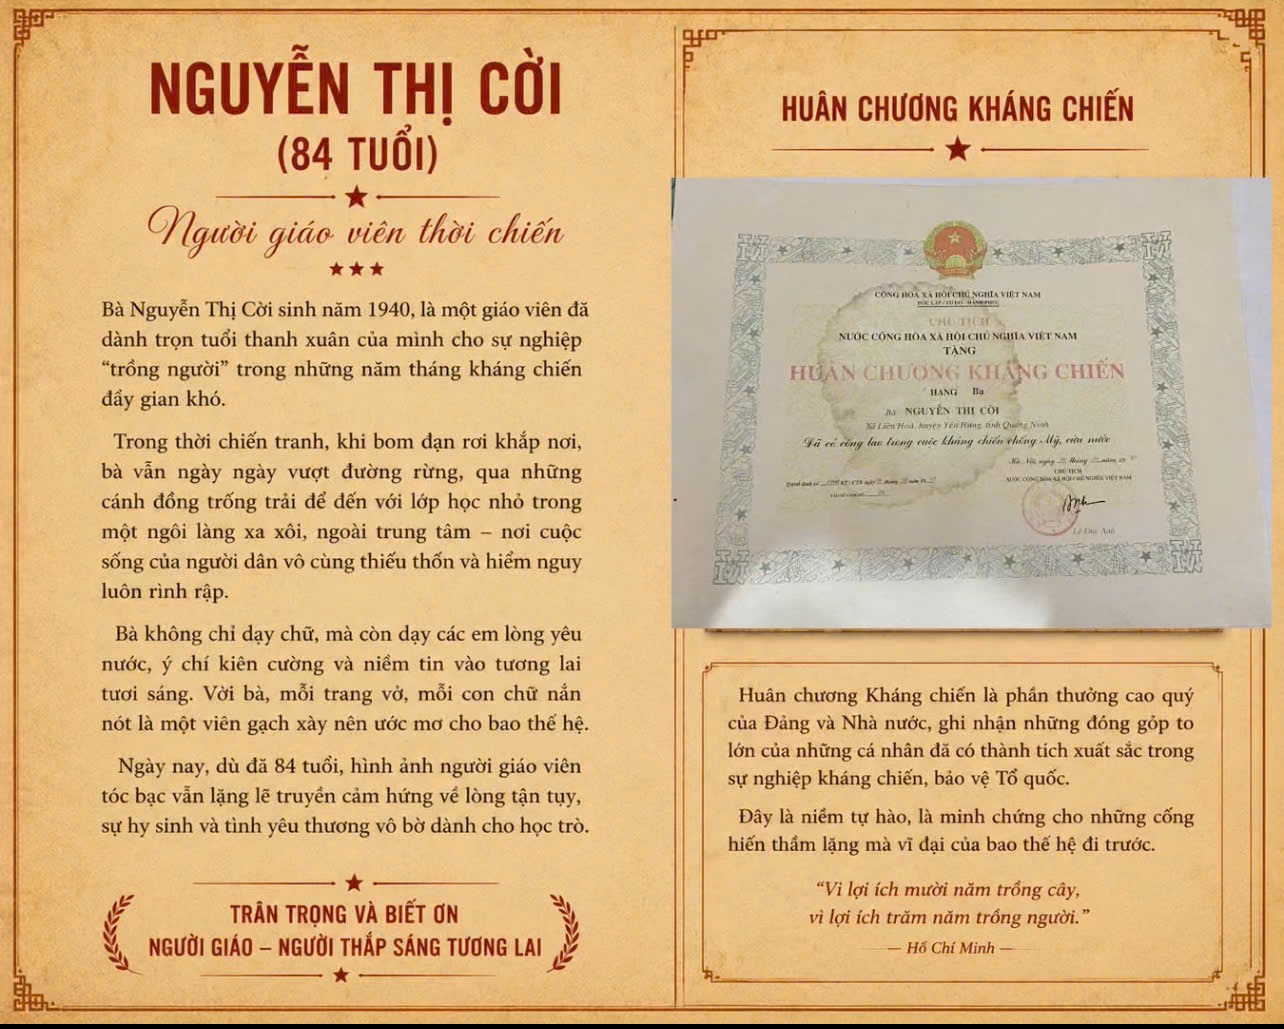 NGUYỄN THỊ CỜI
(84 TUỔI)
Người giáo viên thời chiến
Bà Nguyễn Thị Cời sinh năm 1940, là một giáo viên đã
dành trọn tuổi thanh xuân của mình cho sự nghiệp
“trồng người” trong những năm tháng kháng chiến
đầy gian khó.
Trong thời chiến tranh, khi bom đạn rơi khắp nơi,
bà vẫn ngày ngày vượt đường rừng, qua những
cánh đồng trống trải để đến với lớp học nhỏ trong
một ngôi làng xa xôi, ngoài trung tâm – nơi cuộc
sống của người dân vô cùng thiếu thốn và hiểm nguy
luôn rình rập.
Bà không chỉ dạy chữ, mà còn dạy các em lòng yêu
nước, ý chí kiên cường và niềm tin vào tương lai
tươi sáng. Với bà, mỗi trang vở, mỗi con chữ nắn
nót là một viên gạch xây nên ước mơ cho bao thế hệ.
Ngày nay, dù đã 84 tuổi, hình ảnh người giáo viên
tóc bạc vẫn lặng lẽ truyền cảm hứng về lòng tận tụy,
sự hy sinh và tình yêu thương vô bờ dành cho học trò.
TRÂN TRỌNG VÀ BIẾT ƠN
NGƯỜI GIÁO – NGƯỜI THẮP SÁNG TƯƠNG LAI
HUÂN CHƯƠNG KHÁNG CHIẾN
CỘNG HOÀ XÃ HỘI CHỦ NGHĨA VIỆT NAM
ĐỘC LẬP - TỰ DO - HẠNH PHÚC
CHỦ TỊCH
NƯỚC CỘNG HÒA XÃ HỘI CHỦ NGHĨA VIỆT NAM
TẶNG
HUÂN CHƯƠNG KHÁNG CHIẾN
HẠNG Ba
Bà NGUYỄN THỊ CỜI
Xã Liên Hoà, huyện Yên Hưng, tỉnh Quảng Ninh
Đã có công lao trong cuộc kháng chiến chống Mỹ, cứu nước
Hà Nội, ngày tháng năm
CHỦ TỊCH
NƯỚC CỘNG HÒA XÃ HỘI CHỦ NGHĨA VIỆT NAM
Quyết định số KT/CTN ngày tháng năm
Lê Đức Anh
Huân chương Kháng chiến là phần thưởng cao quý
của Đảng và Nhà nước, ghi nhận những đóng góp to
lớn của những cá nhân đã có thành tích xuất sắc trong
sự nghiệp kháng chiến, bảo vệ Tổ quốc.
Đây là niềm tự hào, là minh chứng cho những cống
hiến thầm lặng mà vĩ đại của bao thế hệ đi trước.
“Vì lợi ích mười năm trồng cây,
vì lợi ích trăm năm trồng người.”
— Hồ Chí Minh —